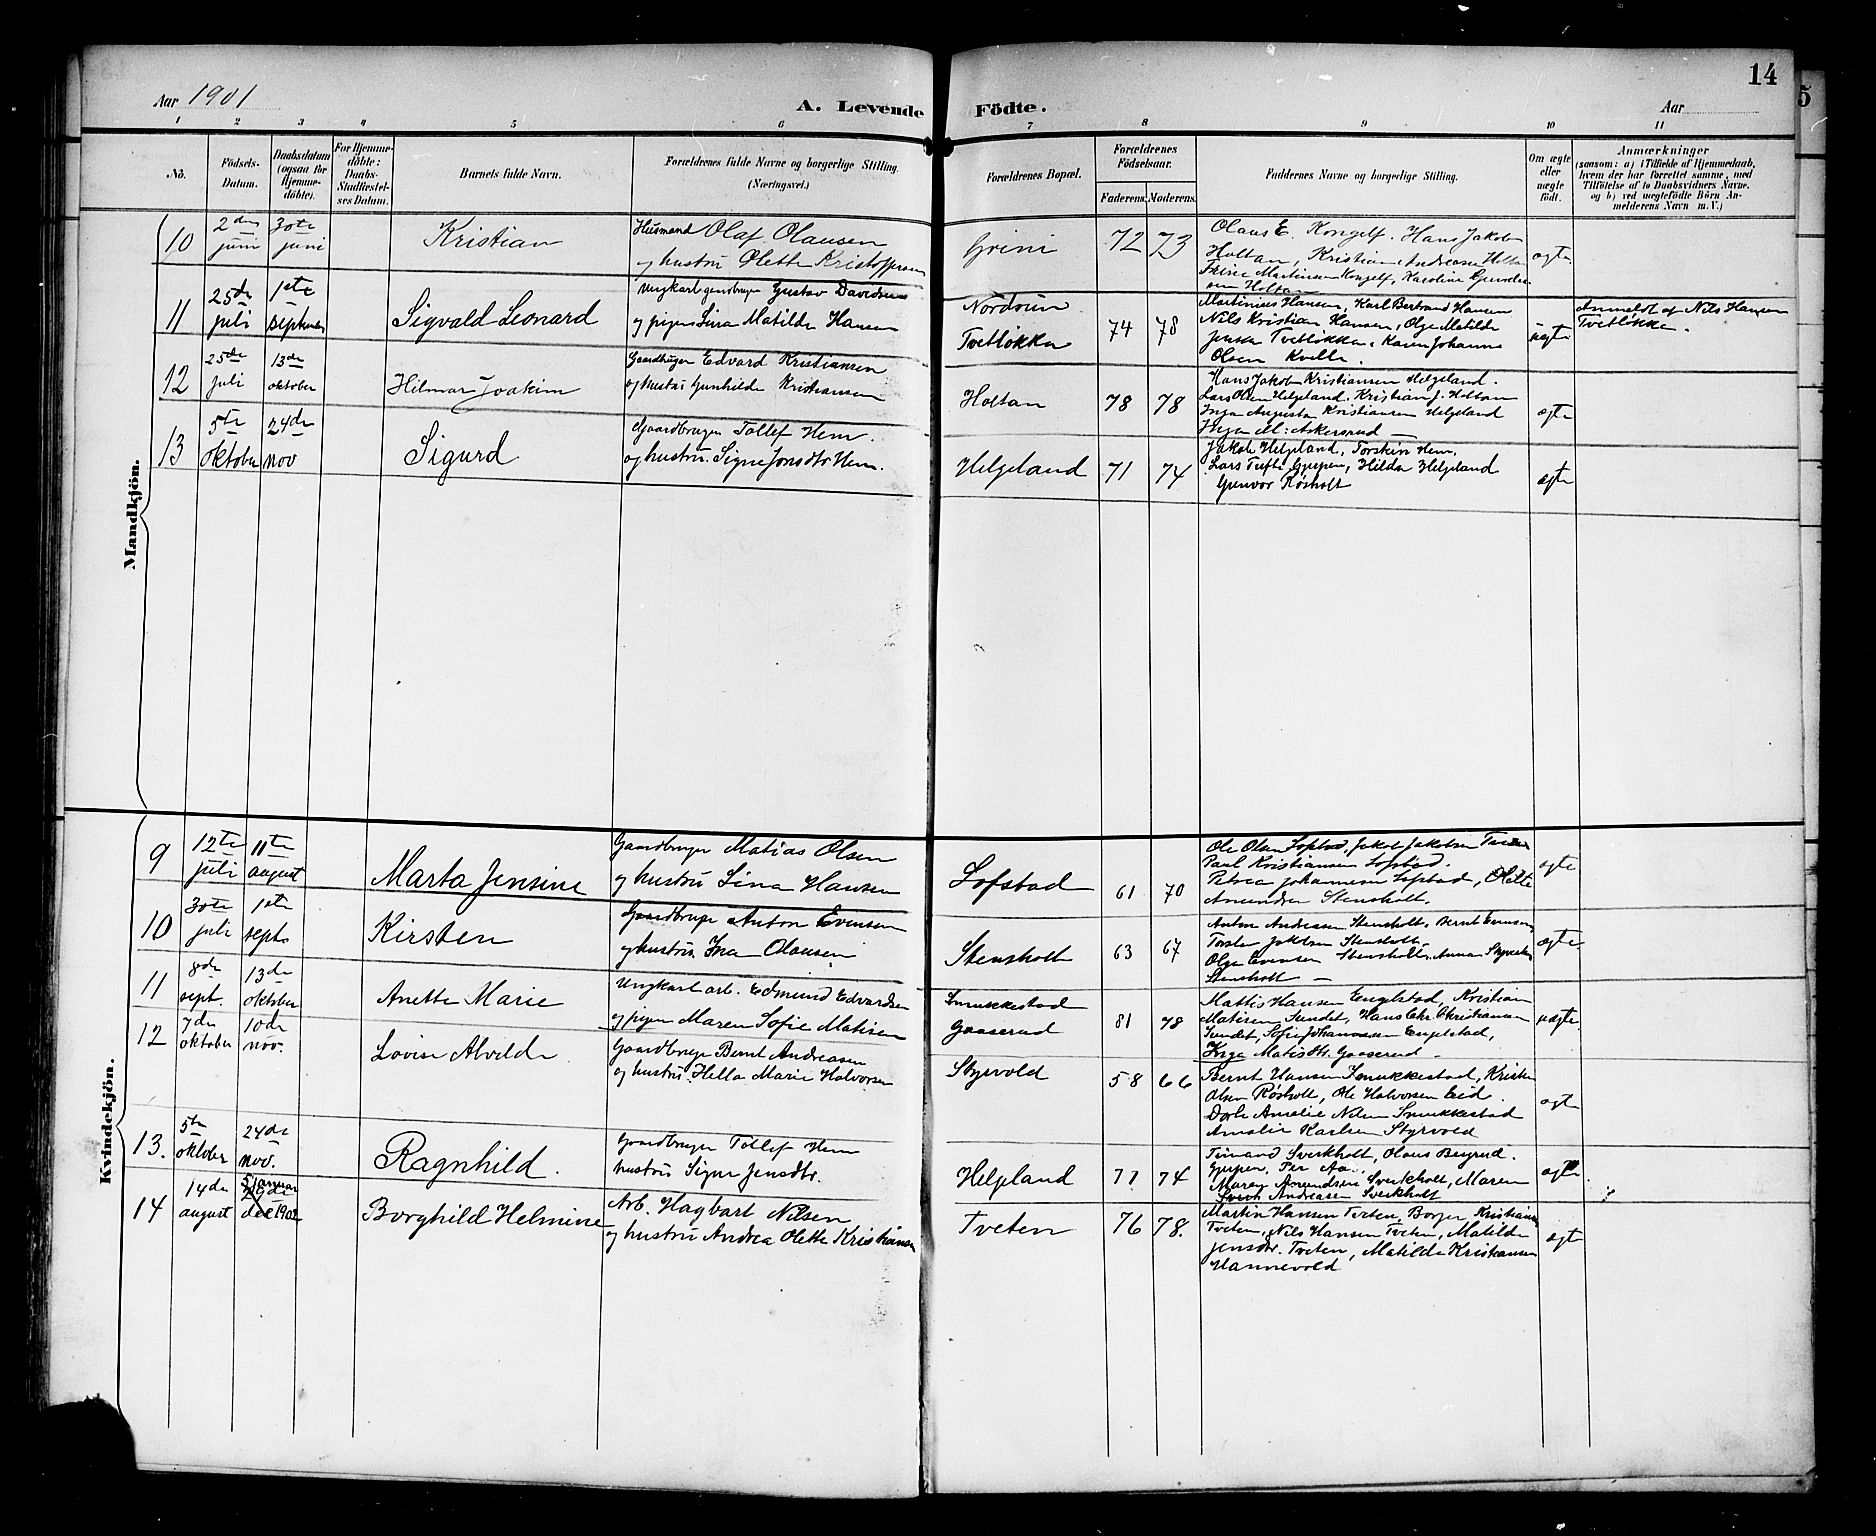 14
Aar 1901
A. Levende Födte.
Aar
1 2 3 4 5 6 7 8 9 10 11
No.
Födsels-Datum.
Daabsdatum (ogsaa for Hjemmedöbte).
For Hjemmedöbte: Daabs-Stadfæstelses Datum.
Barnets fulde Navn.
Forældrenes fulde Navne og borgerlige Stilling. (Næringsvei.)
Forældrenes Bopæl.
Forældrenes Födselsaar.
Faderens. Moderens.
Faddernes Navne og borgerlige Stilling.
Om ægte eller uægte födt.
Anmærkninger
(saasom: a) i Tilfælde af Hjemmedaab, hvem der har forrettet samme, med Tilföielse af to Daabsvidners Navne, og b) ved uægtefödte Börn Anmelderens Navn m. V.)
Mandkjön.
10 2den juni 30te juni Kristian
Husmand Olaf Olausen
og hustru Olette Kristoffersen
Grini 72 73
Olaus E. Kongelf. Hans Jakob
Holtan, Kristian Andreasen Holtan
Martinsen Kongelf, Karoline
Holtan
ægte
11 25de juli 1ste september Sigvald Leonard
Ungkarl gaardbruger Gustav Davidsen
og pigen Lina Matilde Hansen
Nordsum
Tvetløkka 74 78
Martinius Hansen, Karl Bertrand Hansen
Nils Kristian Hansen, Olga Matilde
Jensen Tvetløkka, Karen Johanne
Olsen Kvelle.
uægte
Anmeldt af Nils Hansen
Tvetløkka.
12 25de juli 13de oktober Hilmar Joakim
Gaardbruger Edvard Kristiansen
og hustru Gunhilde Kristiansen
Holtan 78 78
Hans Jakob Kristiansen Helgeland.
Lars Olsen Helgeland. Kristian J. Holtan
Inga Augusta Kristiansen Helgeland
Inga M: Askersrud
ægte
13 5te oktober 24de nov Sigurd
Gaardbruger Tollef Hem.
og hustru. Signe Jensdtr Hem.
Helgeland 71 74
Jakob Helgeland, Torstein Hem,
Lars Tufte Gjerpen, Hilda Helgeland
Gunvor Røsholt
ægte
Kvindekjön.
9 12te juli 11te august Marta Jensine
Gaardbruger Matias Olsen
og hustru Lina Hansen
Lofstad 61 70
Ole Olsen Lofstad, Jakob Jakobsen
Paul Kristiansen Lofstad.
Petrea Johannesen Lofstad, Olette
Amundsen Stensholt.
ægte
10 30te juli 1ste septb Kirsten
Gaardbruger Anton Evensen
og hustru Ina Olausen
Stensholt 63 67
Anton Andreasen Stensholt, Bernt Evensen
Jakobsen Stensholt.
Olga Evensen Stensholt, Anna
Stensholt
ægte
11 8de sept. 13de oktober Anette Marie
Ungkarl arb. Edmund Edvardsen
og pigen Maren Sofie Matisen
Smukkestad
Gaaserud 81 78
Mattis Hansen Engelstad, Kristian
Matisen Sundet, Hans Chr. Christiansen
Sundet, Sofie Johannesen Engelstad,
Inga Matisdtr. Gaaserud
uægte
12 7de oktober 10de nov. Lovise Alvilde
Gaardbruger Bernt Andreasen
og hustru. Hella Marie Halvorsen
Styrvold 58 66
Bernt Hansen Smukkestad, Kristen
Olsen Røsholt, Ole Halvorsen Eid.
Amalie Nilsen Smukkestad
Amalie Karlsen Styrvold
ægte
13. 5te oktober 24de nov. Ragnhild.
Gaardbruger Tollef Hem
hustru Signe Jensdtr.
Helgeland 71 74
Sverkholt, Olaus Bergerud.
Gjerpen, Per Aa..
Maren Amundsen Sverkholt, Maren
Andreasen Sverkholt
ægte
14 14de august 5 januar 29de dec 1902 Borghild Helmine
Arb. Hagbart Nilsen
og hustru Andrea Olette Kristiansen
Tveten 76 78.
Martin Hansen Tveten, Borger Kristiansen
Tveten, Nils Hansen Tveten, Matilde
Jensdtr. Tveten, Matilde Kristiansen
Hannevold
ægte